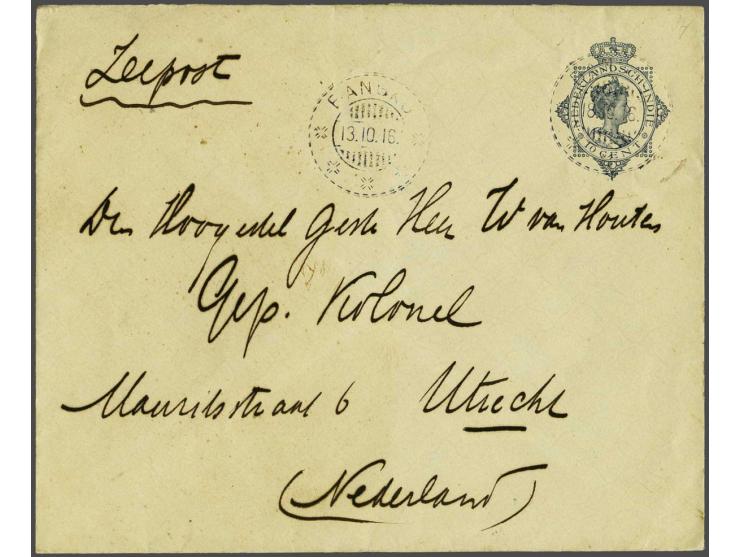 Zeepost
NEDERLANDSCH-INDIË
10 CENT
13.10.16.
Den Hoog edel Gestr Heer W van Houten
Gep. Kolonel
Mauritsstraat 6 Utrecht
(Nederland)